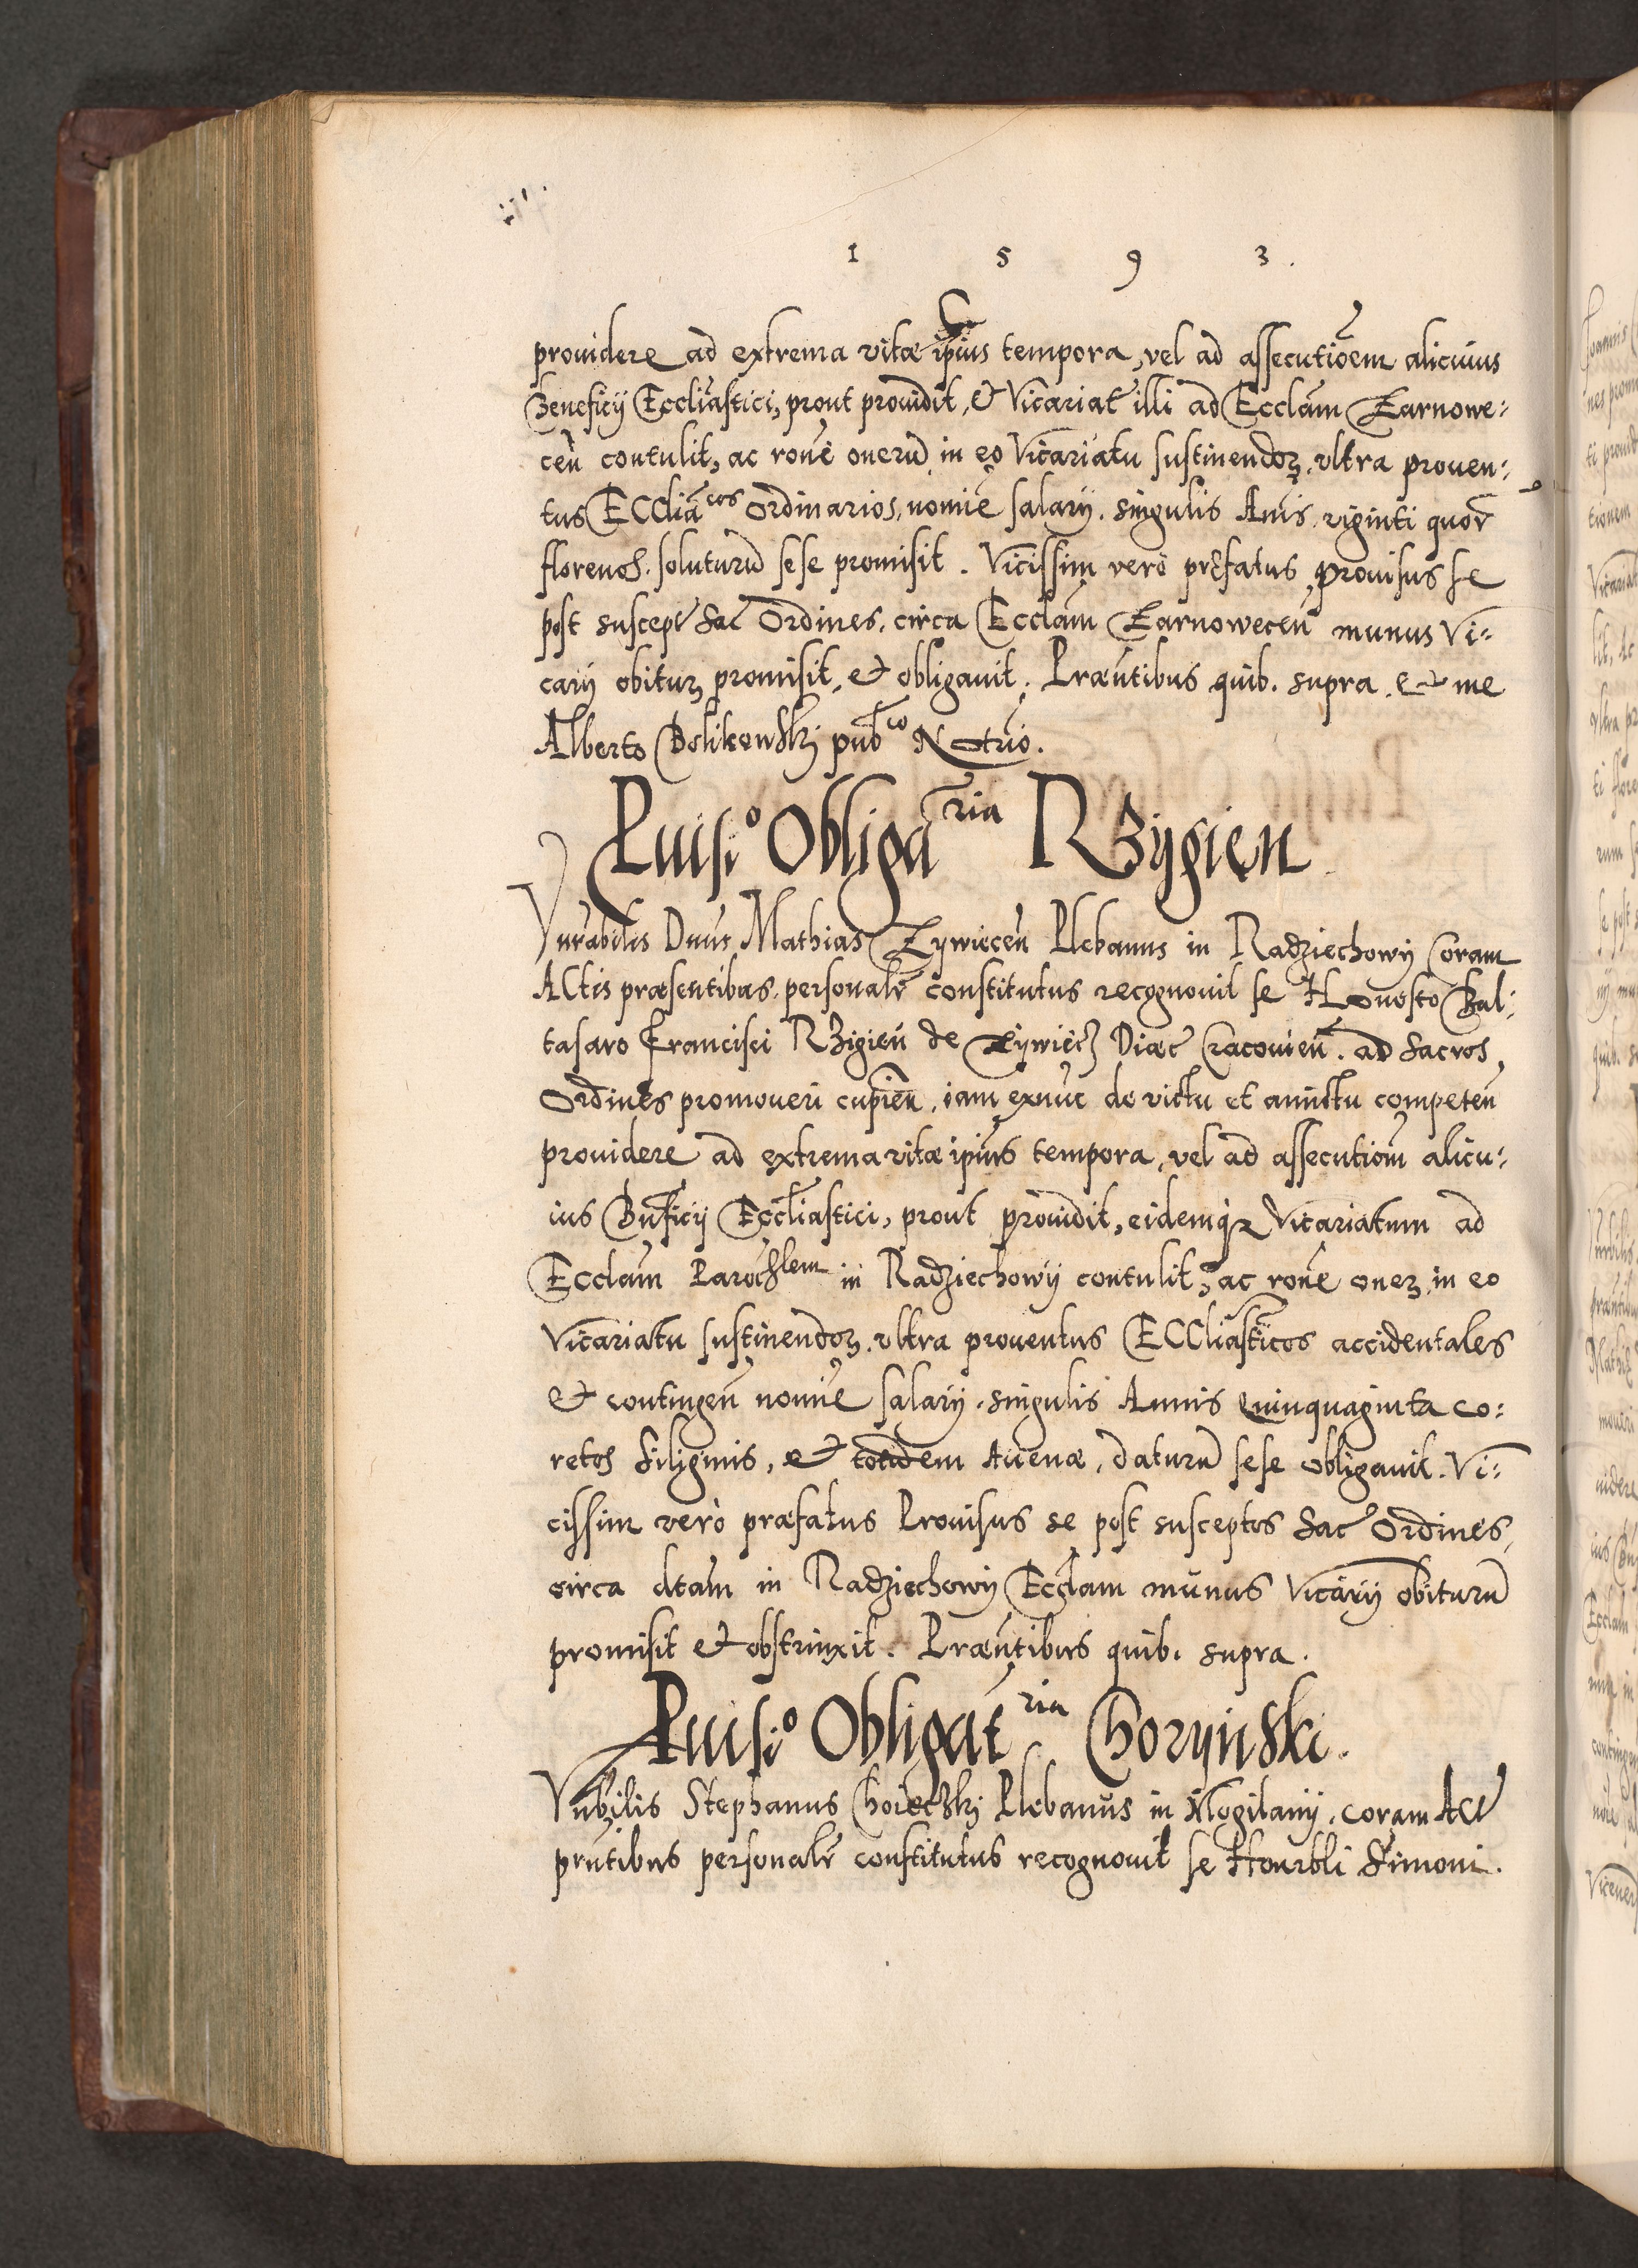 1 5 9 3.
prouidere ad extrema vitæ ipius tempora, vel ad assecutioem alicuius
Beneficij Eccliastici, prout prouidit, et Vicariat illi ad Ecclam Zarnowe:
cen contulit, ac rone onerū in eo Vicariatu sustinendoꝝ, vltra prouen:
tus ECCliacos Ordinarios, nomie salarij. singulis Anis. viginti quor
florenos. soluturū sese promisit. Vicissim vero prefatus Prouisus se
post suscept Sac Ordines, circa Ecclam Zarnowecen munus Vi:
carij obituꝝ promisit, et obligauit. Præntibus quib. supra. et me
Alberto Bolikowskj pubco Notrio.
Puisio Obligaria RZygien
Vnrabilis Dnus Mathias Zywiecen Plebanus in Radziechowij Coram
ACtis præsentibus, personalr constitutus recognouit se Honesto Bal:
tasaro Francisci RZigien de Zijwiecz Diœc Cracouien. ad Sacros
Ordines promoueri cupien, iam exnuc de victu et amictu competen
prouidere ad extrema vitæ ipius tempora, vel ad assecutiom alicu:
ius Bnficij Eccliastici, prout prouidit, eidemqꝫ Vicariatum ad
Ecclam Parochlem in Radziechowij contulit, ac rone oneꝝ in eo
Vicariatu sustinendoꝝ. vltra prouentus ECCliasticos accidentales
et contingen nomine salarij. singulis Annis quinquaginta co:
retos siliginis, et totidem Auenæ, daturū sese obligauit. Vi:
cissim verò præfatus Prouisus se post susceptos Sac Ordines,
circa dtam in Radziechowij Ecclam munus Vicarij obiturū
promisit et obstrinxit. Præntibus quib. supra.
Puisio Obligatria Chorynski.
Vnbilis Stephanus Choieczkj Plebanus in Mogilanij. coram Act
prntibus personalr constitutus recognouit se Honrbli Simoni.